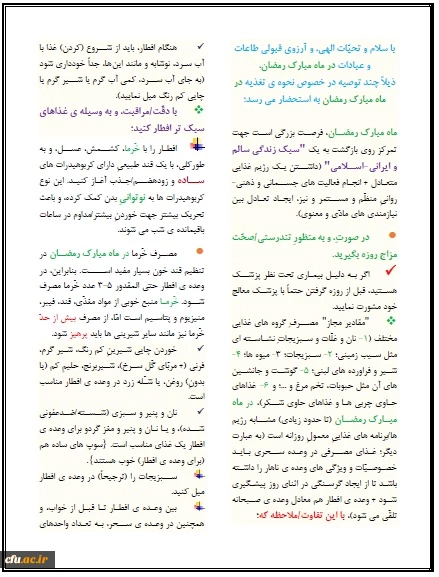 با سلام و تحیّات الهی، و آرزوی قبولی طاعات
و عبادات در ماه مبارک رمضان.
ذیلاً چند توصیه در خصوص نحوه ی تغذیه در
ماه مبارک رمضان به استحضار می رسد:
ماه مبارک رمضان، فرصت بزرگی است جهت
تمرکز روی بازگشت به یک "سبک زندگی سالم
و ایرانی-اسلامی" (داشتن یک رژیم غذایی
متعادل + انجام فعالیت های جسمانی و ذهنی-
روانی منظم و مستمر و نیز، ایجاد تعادل بین
نیازمندی های مادّی و معنوی).
در صورتِ، و به منظور تندرستی/صحّت
مزاج روزه بگیرید.
اگر به دلیل بیماری تحت نظر پزشک
هستید، قبل از روزه گرفتن حتماً با پزشک معالج
خود مشورت نمایید.
"مقادیر مجاز" مصرف گروه های غذایی
مختلف (۱- نان و غلّات و سبزیجات نشاسته ای
مثل سیب زمینی؛ ۲- سبزیجات؛ ۳- میوه ها؛ ۴-
شیر و فراورده های لبنی؛ ۵- گوشت و جانشین
های آن مثل حبوبات، تخم مرغ و ...؛ و ۶- غذاهای
حاوی چربی ها و غذاهای حاوی شکر)، در ماه
مبارک رمضان (تا حدود زیادی) مشابه رژیم
ها/برنامه های غذایی معمول روزانه است (به عبارت
دیگر؛ غذای مصرفی در وعده سحری باید
خصوصیّات و ویژگی های وعده ی ناهار را داشته
باشد تا از ایجاد گرسنگی در اثنای روز پیشگیری
شود + وعده ی افطار هم معادل وعده ی صبحانه
تلقّی می شود)، با این تفاوت/ملاحظه که؛
هنگام افطار، باید از شروع (کردن) غذا با
آب سرد، نوشابه و مانند این‌ها، جداً خودداری شود
(به جای آب سرد، کمی آب گرم یا شیر گرم یا
چایی کم رنگ میل نمایید).
با دقّت/مراقبت، و به وسیله ی غذاهای
سبک تر افطار کنید؛
افطار را با خُرما، کشمش، عسل، و به
طورکلی، با یک قند طبیعی دارای کربوهیدرات های
ساده و زودهضم/جذب آغاز کنید. این نوع
کربوهیدرات ها به نوتوانی بدن کمک کرده، و باعث
تحریک بیشتر جهت خوردن بیشتر/مداوم در ساعات
باقیمانده ی شب می شوند.
مصرف خُرما در ماه مبارک رمضان در
تنظیم قند خون بسیار مفید است. بنابراین، در
وعده ی افطار حتی المقدور ۵-۳ عدد خُرما مصرف
شود. خُرما منبع خوبی از مواد مغذّی، قند، فیبر،
منیزیوم و پتاسیم است امّا، از مصرف بیش از حدّ
خُرما نیز مانند سایر شیرینی ها باید پرهیز شود.
خوردن چایی شیرین کم رنگ، شیر گرم،
فرنی (+ مربّای گُل سرخ)، شیربرنج، حلیم کم (یا
بدون) روغن، یا شُلّه زرد در وعده ی افطار مناسب
است.
نان و پنیر و سبزی (شسته/ضدعفونی
شده)، و یا نان و پنیر و مغز گردو برای وعده ی
افطار یک غذای مناسب است. {سوپ های ساده هم
(برای وعده ی افطار) خوب هستند}.
سبزیجات را (ترجیحاً) در وعده ی افطار
میل کنید.
بین وعده ی افطار تا قبل از خواب، و
همچنین در وعده ی سحر، به تعداد واحدهای
cfu.ac.ir